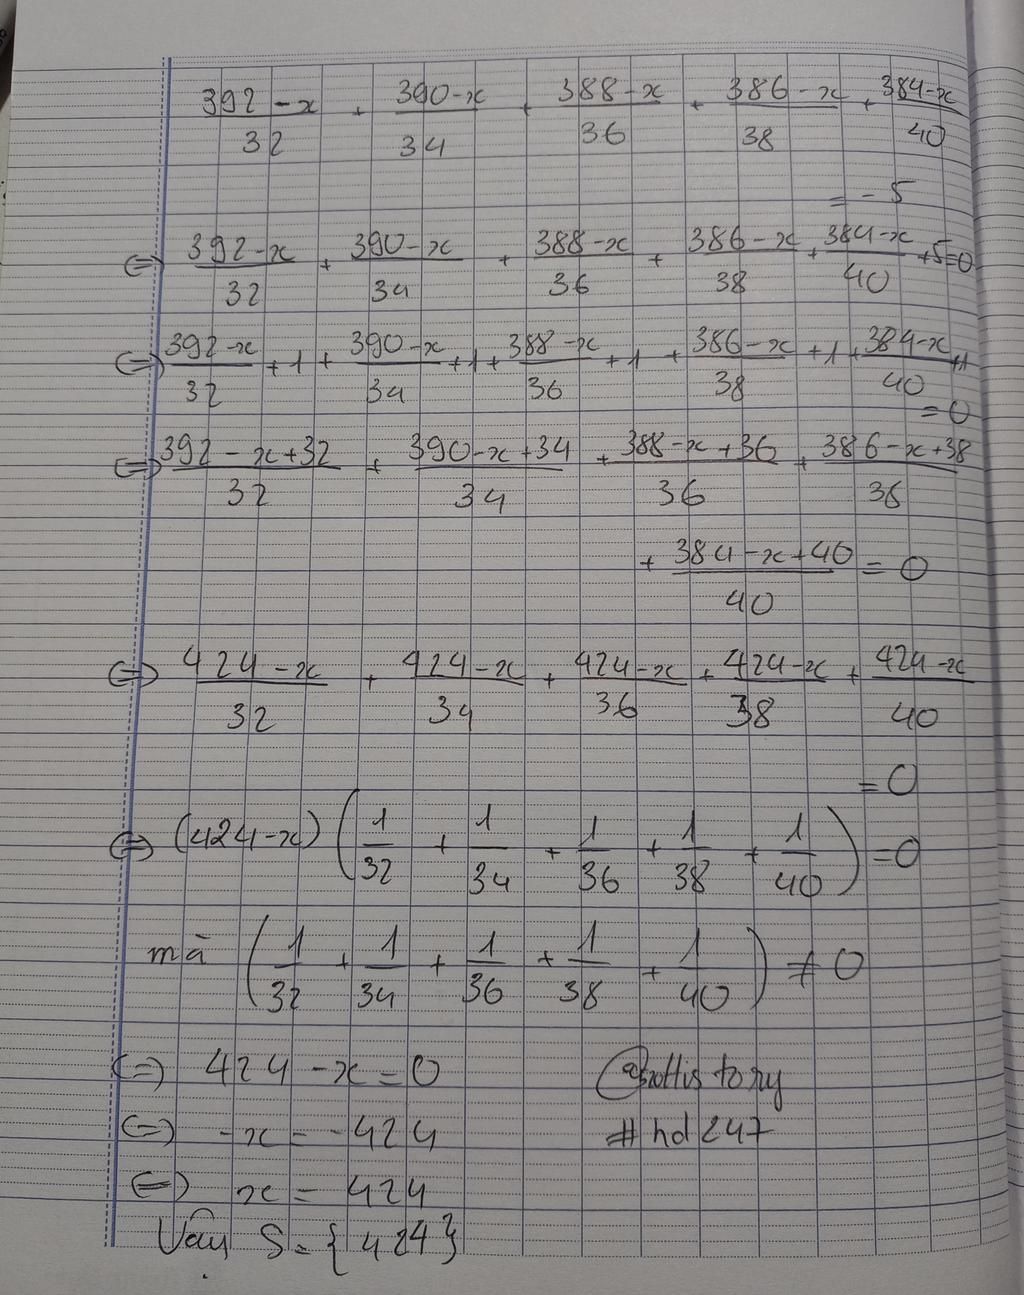 392 - x / 32 + 390 - x / 34 + 388 - x / 36 + 386 - x / 38 + 384 - x / 40
= - 5
⇔ 392 - x / 32 + 390 - x / 34 + 388 - x / 36 + 386 - x / 38 + 384 - x / 40 + 5 = 0
⇔ 392 - x / 32 + 1 + 390 - x / 34 + 1 + 388 - x / 36 + 1 + 386 - x / 38 + 1 + 384 - x / 40 + 1
= 0
⇔ 392 - x + 32 / 32 + 390 - x + 34 / 34 + 388 - x + 36 / 36 + 386 - x + 38 / 38
+ 384 - x + 40 / 40 = 0
⇔ 424 - x / 32 + 424 - x / 34 + 424 - x / 36 + 424 - x / 38 + 424 - x / 40
= 0
⇔ (424 - x) (1/32 + 1/34 + 1/36 + 1/38 + 1/40) = 0
mà (1/32 + 1/34 + 1/36 + 1/38 + 1/40) ≠ 0
⇔ 424 - x = 0
⇔ - x = - 424
⇔ x = 424
Vậy S = {424}
#hd247